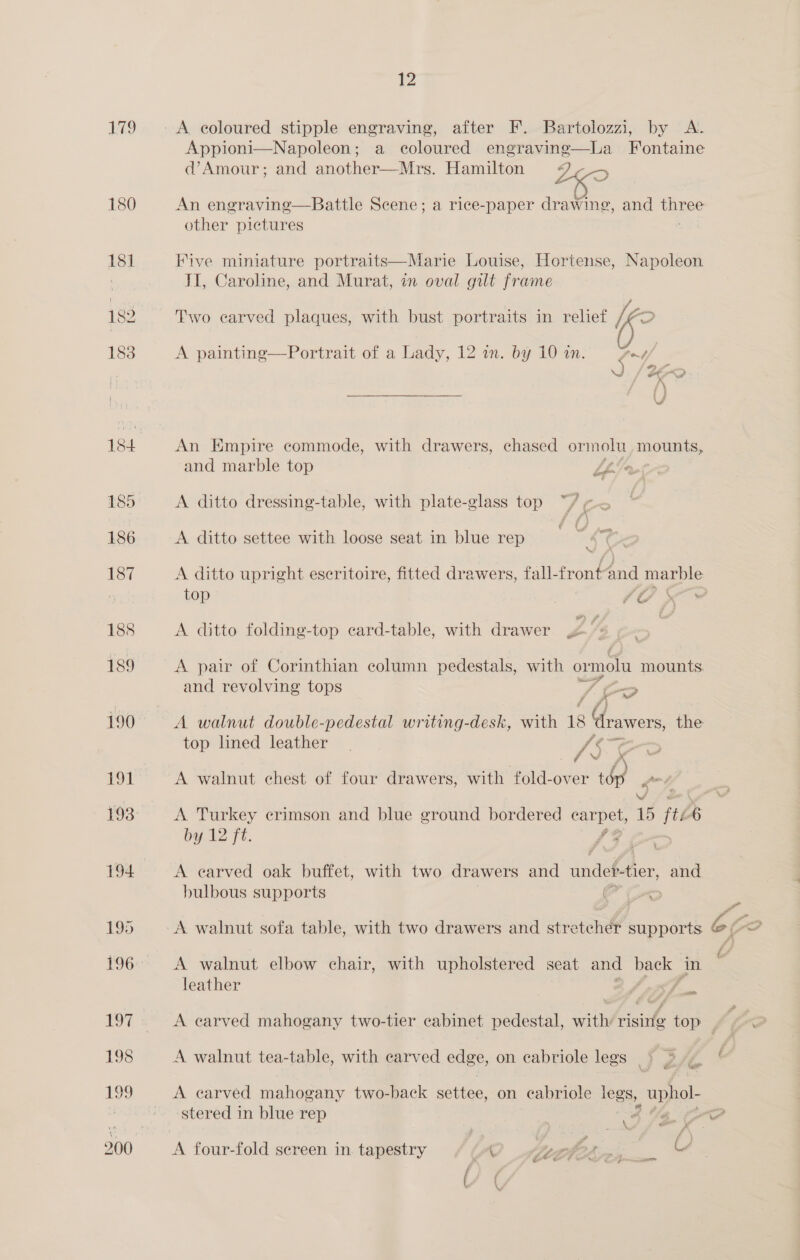 12
179 A coloured stipple engraving, after F. Bartolozzi, by A.
Appioni—Napoleon; a coloured engraving—La Fontaine
d'Amour; and another—Mrs. Hamilton
180 An engraving—Battle Scene; a rice-paper drawing, and three
other pictures
181 Five miniature portraits—Marie Louise, Hortense, Napoleon
II, Caroline, and Murat, in oval gilt frame
182 Two carved plaques, with bust portraits in relief
183 A painting—Portrait of a Lady, 12 in. by 10 in.
184 An Empire commode, with drawers, chased ormolu mounts,
and marble top
185 A ditto dressing-table, with plate-glass top
186 A ditto settee with loose seat in blue rep
187 A ditto upright escritoire, fitted drawers, fall-front and marble
top
188 A ditto folding-top card-table, with drawer
189 A pair of Corinthian column pedestals, with ormolu mounts
and revolving tops
190 A walnut double-pedestal writing-desk, with 18 drawers, the
top lined leather
191 A walnut chest of four drawers, with fold-over top
193 A Turkey crimson and blue ground bordered carpet, 15 ft 6
by 12 ft.
194 A carved oak buffet, with two drawers and under-tier, and
bulbous supports
195 A walnut sofa table, with two drawers and stretcher supports
196 A walnut elbow chair, with upholstered seat and back in
leather
197 A carved mahogany two-tier cabinet pedestal, with rising top
198 A walnut tea-table, with carved edge, on cabriole legs
199 A carved mahogany two-back settee, on cabriole legs, uphol-
stered in blue rep
200 A four-fold screen in tapestry